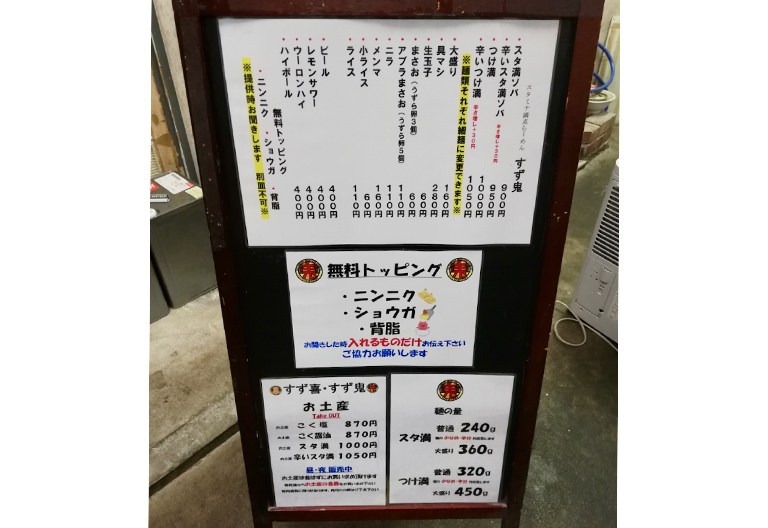 スタミナ満点らーめん すず鬼
・スタ満ソバ 900円
・辛いスタ満ソバ 950円
辛さ増し+50円
・つけ満 1000円
・辛いつけ満 1050円
辛さ増し+30円
※麺類それぞれ細麺に変更できます※
・大盛り 160円
・具マシ 280円
・生玉子 60円
・まさお(うずら卵3個) 60円
・アブラまさお(うずら卵5個) 110円
・ニラ 110円
・メンマ 160円
・小ライス 60円
・ライス 110円
・ビール 400円
・レモンサワー 400円
・ウーロンハイ 400円
・ハイボール 400円
無料トッピング
・ニンニク ・ショウガ ・背脂
※提供時お聞きします 別皿不可※
無料トッピング
・ニンニク
・ショウガ
・背脂
お聞きした時入れるものだけお伝え下さい
ご協力お願いします
すず喜・すず鬼
お土産
Take OUT
お土産 こく塩 870円
お土産 こく醤油 870円
お土産 スタ満 1000円
お土産 辛いスタ満 1050円
昼・夜 販売中
お土産は並ばずにお買い求め頂けます
麺の量
スタ満
普通 240g
大盛り 360g
つけ満
普通 320g
大盛り 450g